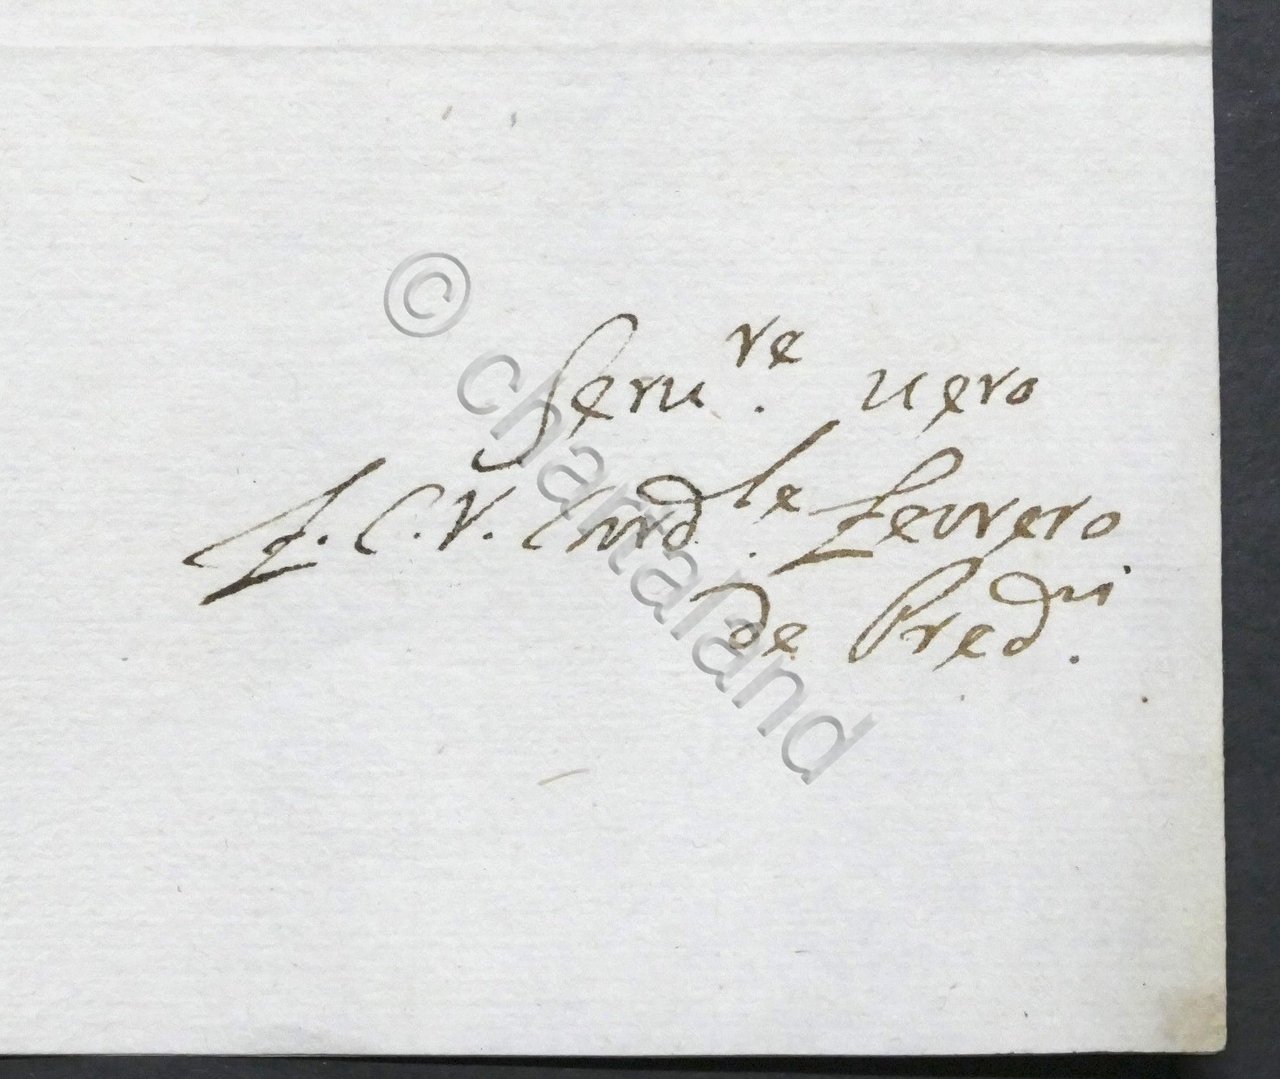 Seru.re uero
F. C. V. Card.le Ferrero
de Pred.ri
© chartaland